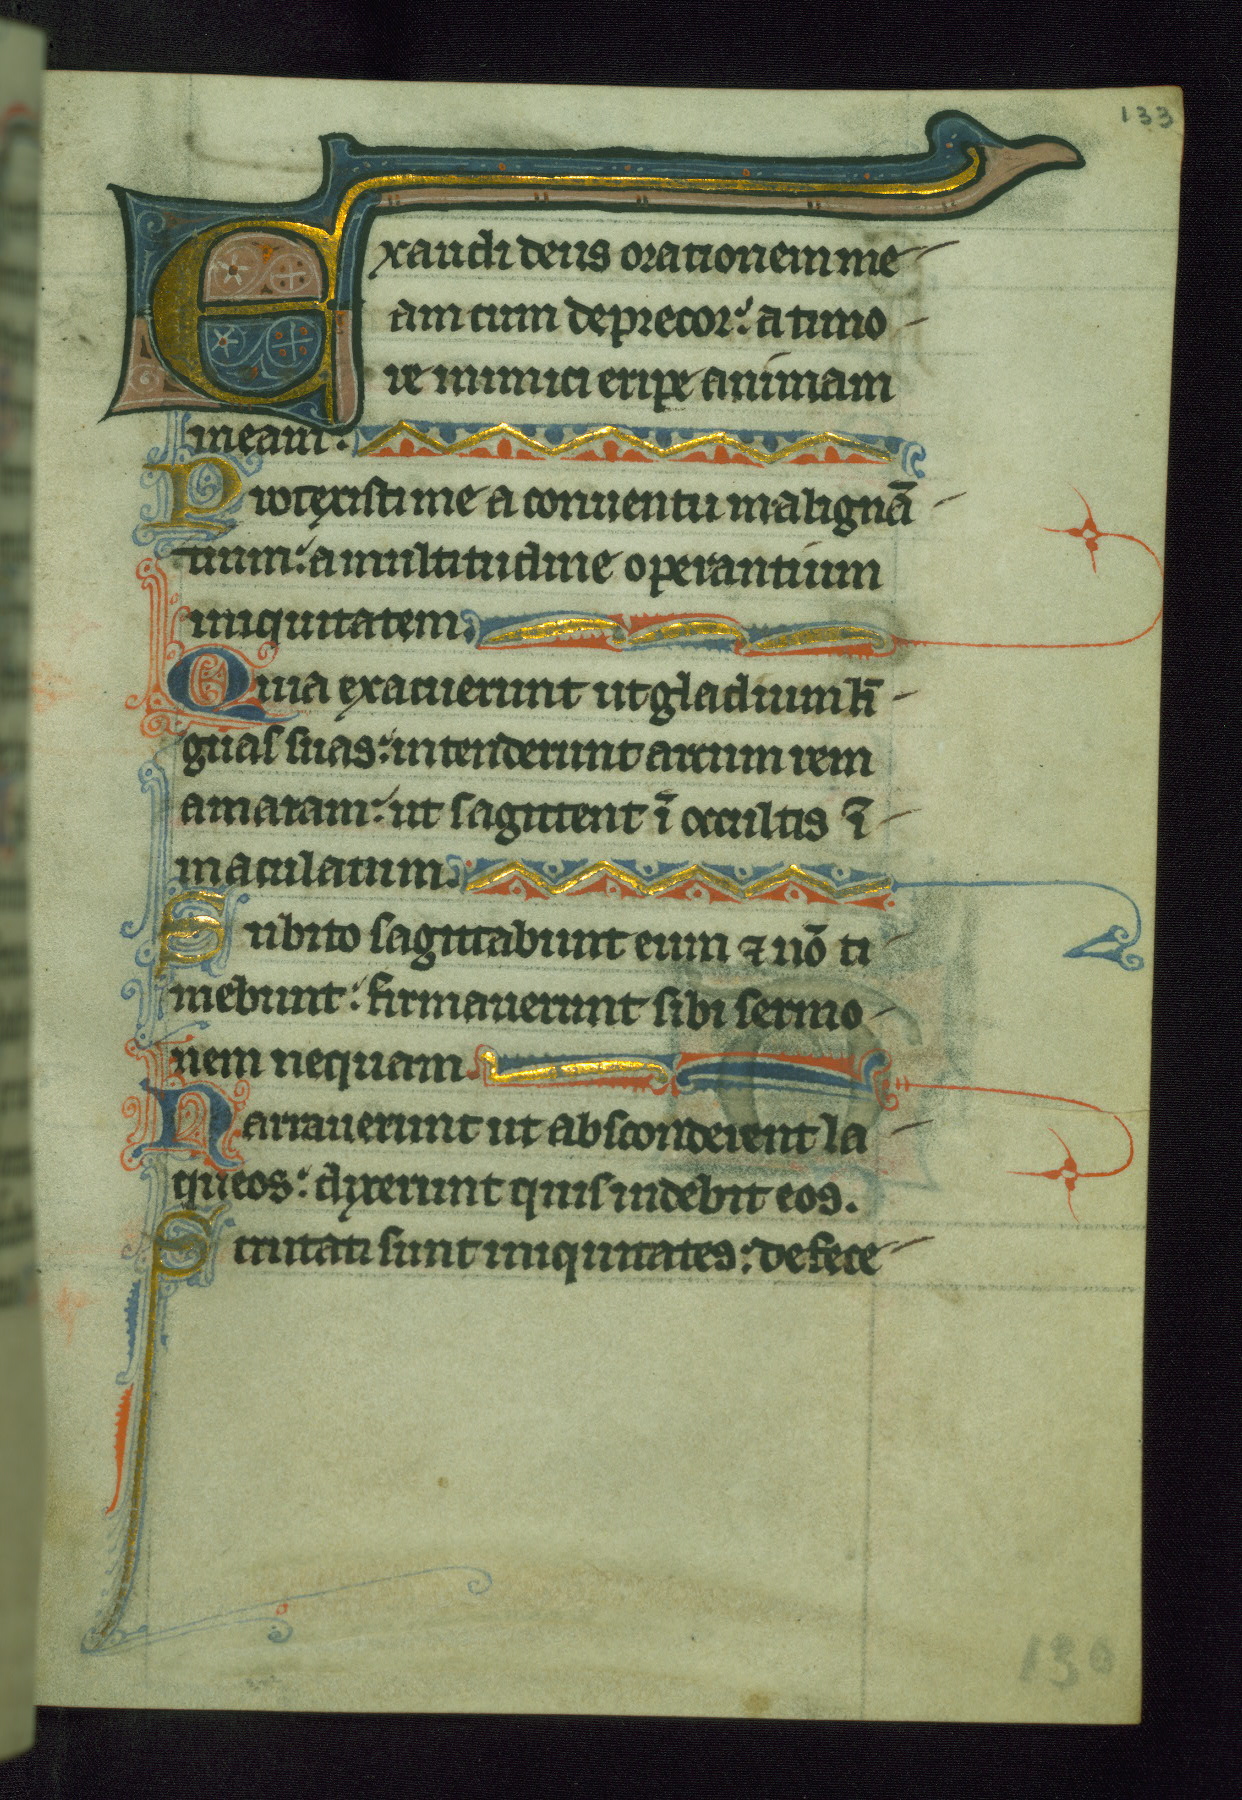 133
Exaudi deus orationem me
am cum deprecor: a timo
re inimici eripe animam
meam.
Protexisti me a conuentu malignā
tium: a multitudine operantium
iniquitatem.
Quia exacuerunt ut gladium lī
guas suas: intenderunt arcum rem
amaram: ut sagittent ī occultis ī
maculatum.
Subito sagittabunt eum ⁊ nō ti
mebunt: firmauerunt sibi sermo
nem nequam.
Narrauerunt ut absconderent la
queos: dixerunt quis uidebit eos.
Scrutati sunt iniquitates: defece
130